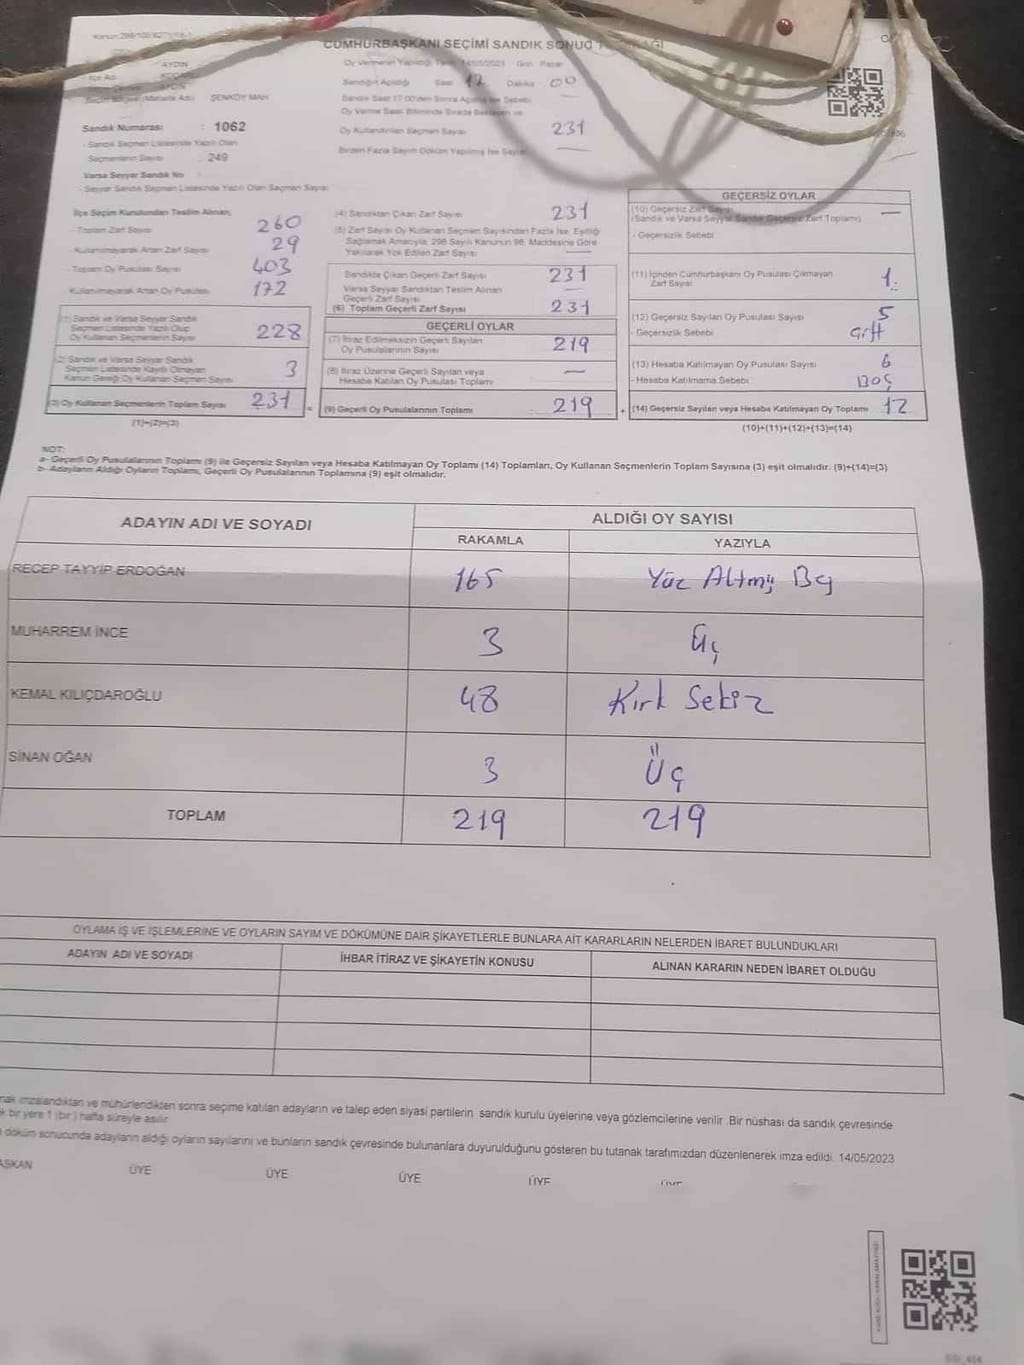 CUMHURBAŞKANI SEÇİMİ SANDIK SONUÇ
AYDIN
Saat 17 Dakika 00
ŞENKÖY MAH
Sandık Saat 17:00'den Sonra Açılmış İse Sebebi
Sandık Numarası : 1062
- Sandık Seçmen Listesinde Yazılı Olan
Seçmenlerin Sayısı : 249
Oy Kullandırılan Seçmen Sayısı 231
Birden Fazla Sayım Döküm Yapılmış İse Sayısı —
Varsa Seyyar Sandık No
- Seyyar Sandık Seçmen Listesinde Yazılı Olan Seçmen Sayısı
İlçe Seçim Kurulundan Teslim Alınan;
- Toplam Zarf Sayısı 260
- Kullanılmayarak Artan Zarf Sayısı 29
- Toplam Oy Pusulası Sayısı 403
- Kullanılmayarak Artan Oy Pusulası 172
(1) Sandık ve Varsa Seyyar Sandık
Seçmen Listesinde Yazılı Olup
Oy Kullanan Seçmenlerin Sayısı 228
(2) Sandık ve Varsa Seyyar Sandık
Seçmen Listesinde Kayıtlı Olmayan
Kanun Gereği Oy Kullanan Seçmen Sayısı 3
(3) Oy Kullanan Seçmenlerin Toplam Sayısı 231 =
(1)+(2)=(3)
(4) Sandıktan Çıkan Zarf Sayısı 231
(5) Zarf Sayısı Oy Kullanan Seçmen Sayısından Fazla İse, Eşitliği
Sağlamak Amacıyla, 298 Sayılı Kanunun 98. Maddesine Göre
Yakılarak Yok Edilen Zarf Sayısı —
Sandıkta Çıkan Geçerli Zarf Sayısı 231
Varsa Seyyar Sandıktan Teslim Alınan
Geçerli Zarf Sayısı —
(6) Toplam Geçerli Zarf Sayısı 231
GEÇERLİ OYLAR
(7) İtiraz Edilmeksizin Geçerli Sayılan
Oy Pusulalarının Sayısı 219
(8) İtiraz Üzerine Geçerli Sayılan veya
Hesaba Katılan Oy Pusulası Toplamı —
(9) Geçerli Oy Pusulalarının Toplamı : 219 +
GEÇERSİZ OYLAR
(10) Geçersiz Zarf Sayısı —
(Sandık ve Varsa Seyyar Sandık Geçersiz Zarf Toplamı)
- Geçersizlik Sebebi
(11) İçinden Cumhurbaşkanı Oy Pusulası Çıkmayan
Zarf Sayısı 1
(12) Geçersiz Sayılan Oy Pusulası Sayısı 5
- Geçersizlik Sebebi Çift
(13) Hesaba Katılmayan Oy Pusulası Sayısı 6
- Hesaba Katılmama Sebebi BOŞ
(14) Geçersiz Sayılan veya Hesaba Katılmayan Oy Toplamı 12
(10)+(11)+(12)+(13)=(14)
NOT:
a- Geçerli Oy Pusulalarının Toplamı (9) ile Geçersiz Sayılan veya Hesaba Katılmayan Oy Toplamı (14) Toplamları, Oy Kullanan Seçmenlerin Toplam Sayısına (3) eşit olmalıdır. (9)+(14)=(3)
b- Adayların Aldığı Oyların Toplamı, Geçerli Oy Pusulalarının Toplamına (9) eşit olmalıdır.
ADAYIN ADI VE SOYADI
ALDIĞI OY SAYISI
RAKAMLA YAZIYLA
RECEP TAYYİP ERDOĞAN 165 Yüz Altmış Beş
MUHARREM İNCE 3 Üç
KEMAL KILIÇDAROĞLU 48 Kırk Sekiz
SİNAN OĞAN 3 Üç
TOPLAM 219 219
OYLAMA İŞ VE İŞLEMLERİNE VE OYLARIN SAYIM VE DÖKÜMÜNE DAİR ŞİKAYETLERLE BUNLARA AİT KARARLARIN NELERDEN İBARET BULUNDUKLARI
ADAYIN ADI VE SOYADI İHBAR İTİRAZ VE ŞİKAYETİN KONUSU ALINAN KARARIN NEDEN İBARET OLDUĞU
imzalandıktan ve mühürlendikten sonra seçime katılan adayların ve talep eden siyasi partilerin sandık kurulu üyelerine veya gözlemcilerine verilir. Bir nüshası da sandık çevresinde
bir yere 1 (bir) hafta süreyle asılır.
döküm sonucunda adayların aldığı oyların sayılarını ve bunların sandık çevresinde bulunanlara duyurulduğunu gösteren bu tutanak tarafımızdan düzenlenerek imza edildi. 14/05/2023
AŞKAN ÜYE ÜYE ÜYE ÜYE ÜYE